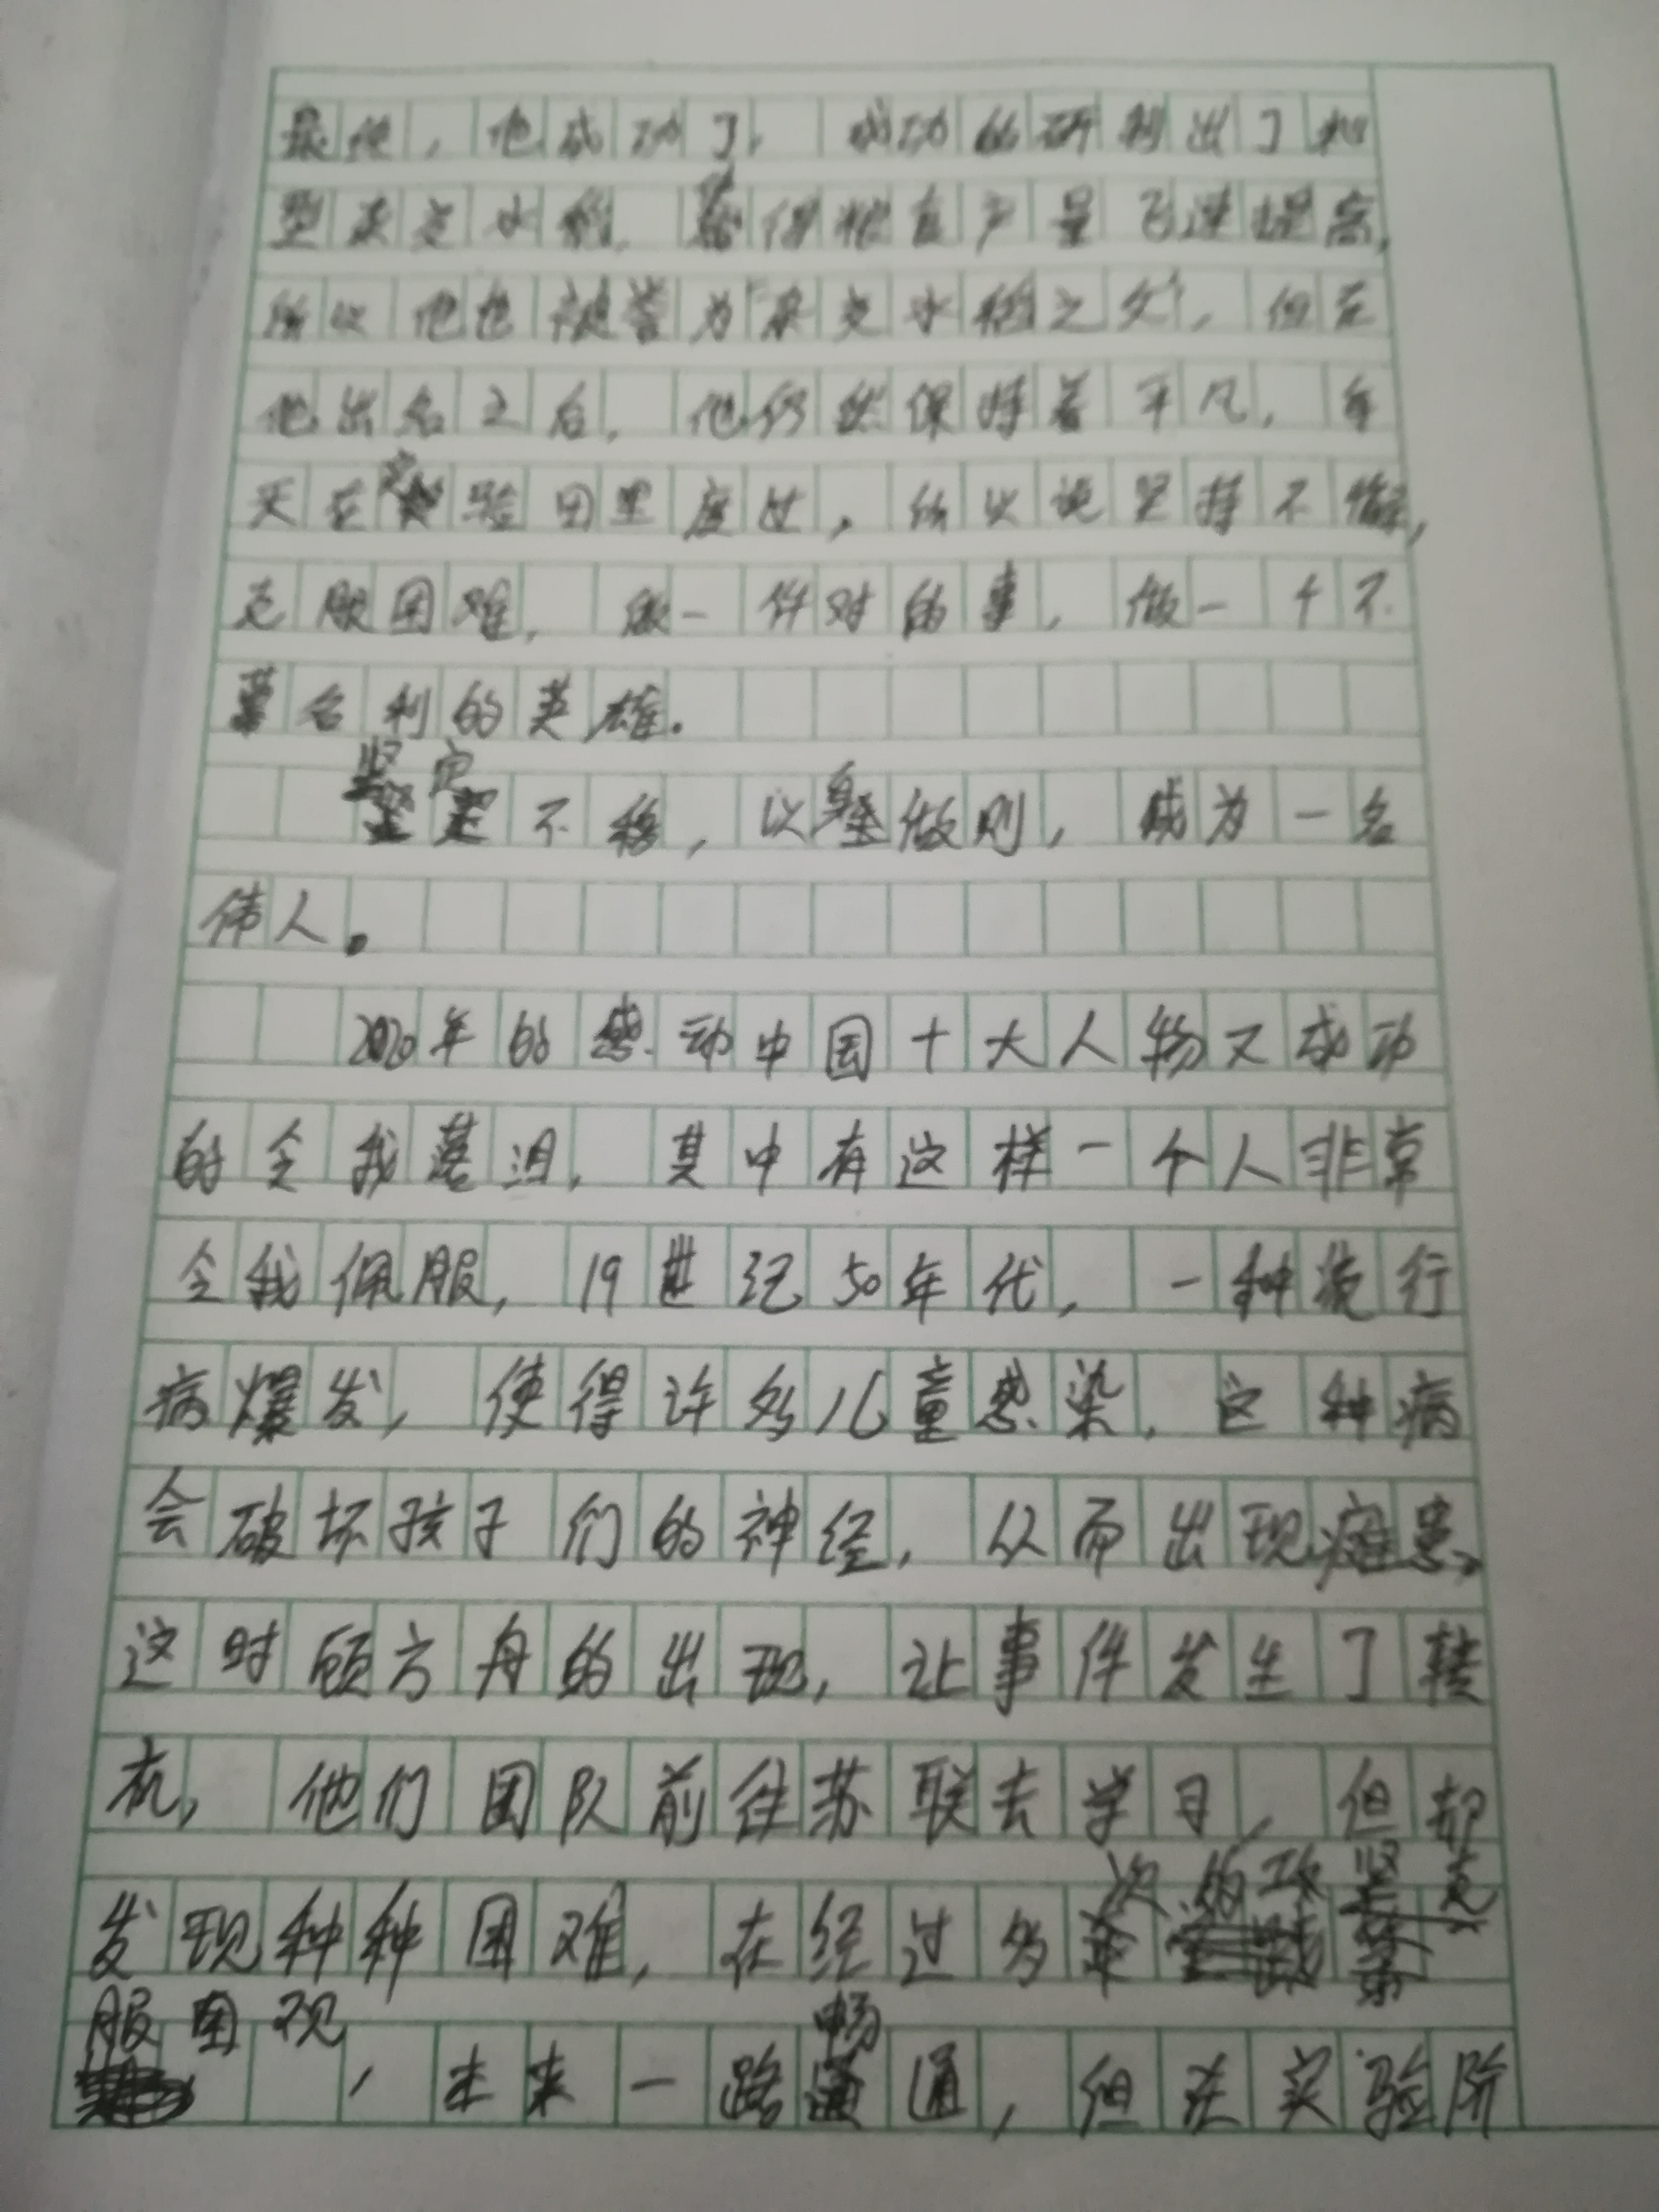 最终，他成功了，成功的研制出了籼
型杂交水稻，使得粮食产量飞速提高，
所以他也被誉为“杂交水稻之父”，但在
他出名之后，他仍然保持着平凡，每
天在实验田里度过，所以说坚持不懈，
克服困难，做一件对的事，做一个不
慕名利的英雄。
坚定不移，以身做则，成为一名
伟人。
2020年的感动中国十大人物又成功
的令我落泪，其中有这样一个人非常
令我佩服，19世纪50年代，一种流行
病爆发，使得许多儿童感染，这种病
会破坏孩子们的神经，从而出现瘫患，
这时顾方舟的出现，让事件发生了转
机，他们团队前往苏联去学习，但却
发现种种困难，在经过多次的攻坚克
服困难，未来一路畅通，但在实验阶